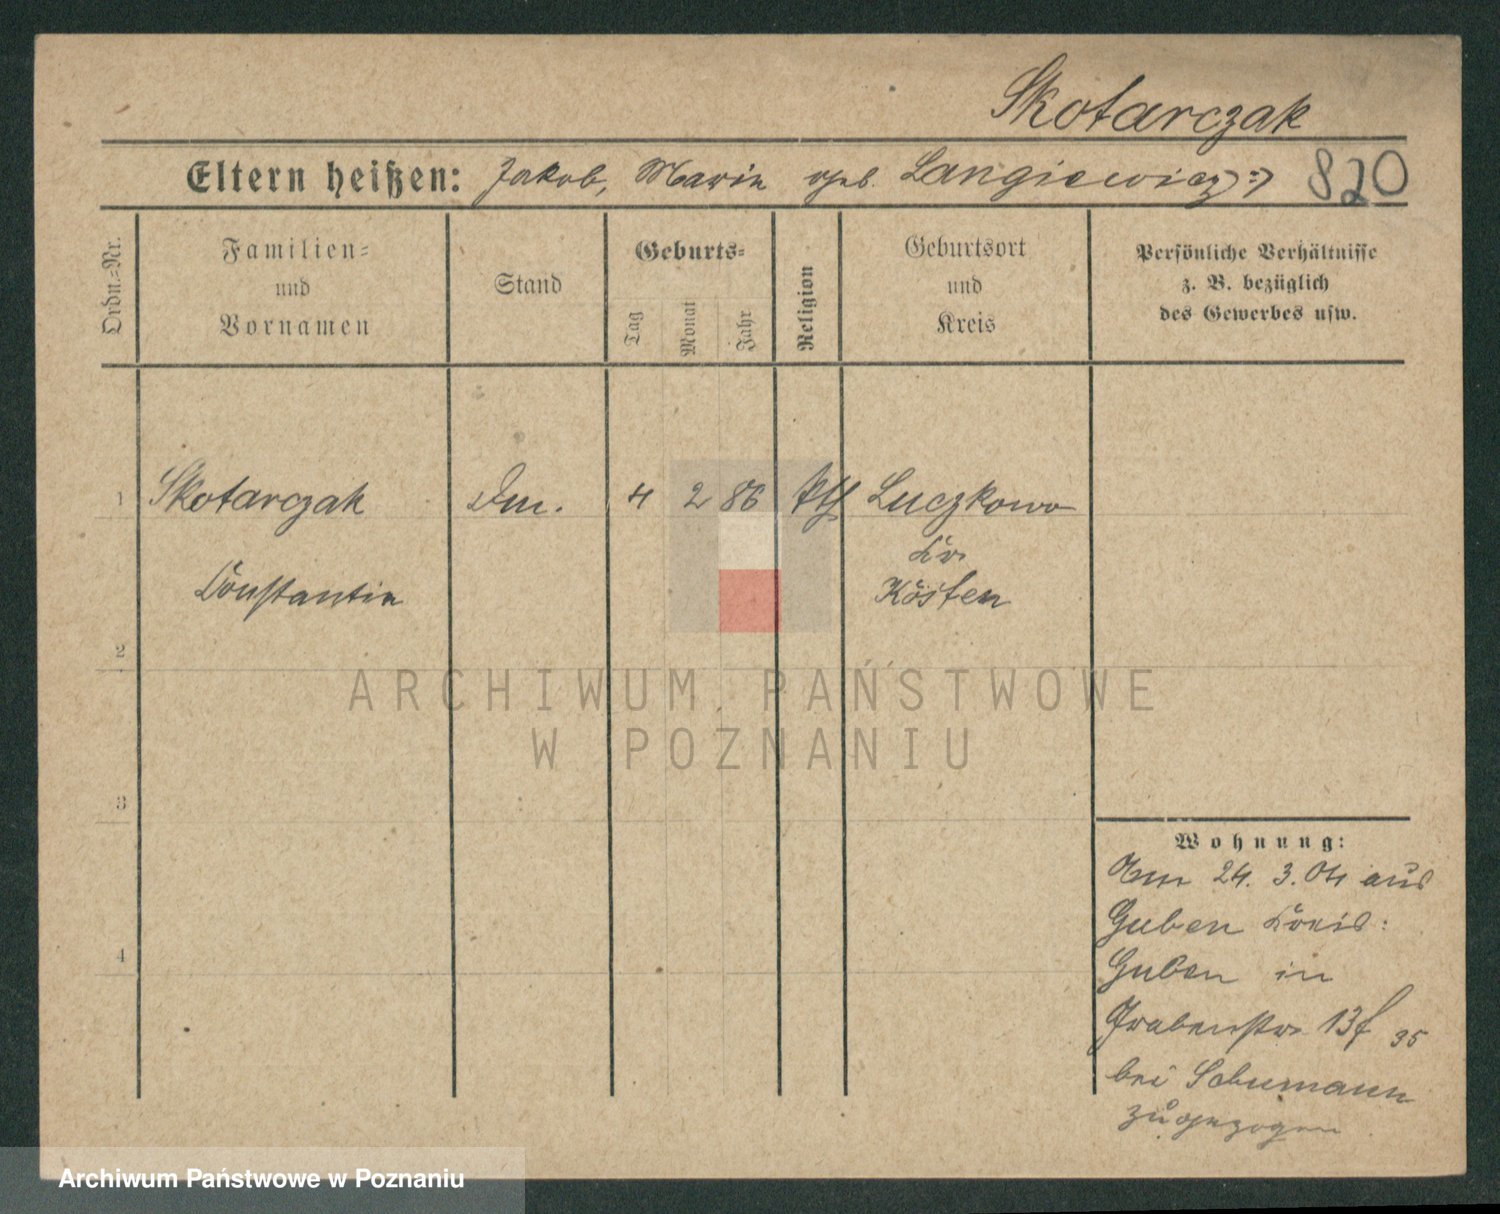 Skotarczak
Eltern heißen: Jakob, Marie geb. Langiewicz 820
Ordn.=Nr.
Familien=
und
Vornamen
Stand
Geburts=
Tag
Monat
Jahr
Religion
Geburtsort
und
Kreis
Persönliche Verhältnisse
z. B. bezüglich
des Gewerbes usw.
1 Skotarczak 4 2 86 kth Luczkowo
Kr.
Constantin Kösten
2
ARCHIWUM PAŃSTWOWE
W POZNANIU
3
Wohnung:
Am 24. 3. 04 aus
Guben Kreis:
4
Guben in
Grabenstr. 13f 35
bei Schumann
zugezogen
Archiwum Państwowe w Poznaniu